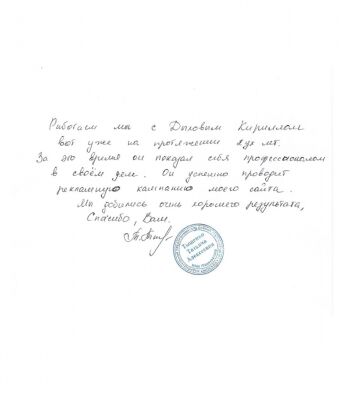 Работаем мы с Дыловым Кириллом
вот уже на протяжении 2ух лет.
За это время он показал себя профессионалом
в своём деле. Он успешно проводит
рекламную кампанию моего сайта.
Мы добились очень хорошего результата,
Спасибо, Вам.
Татьяна